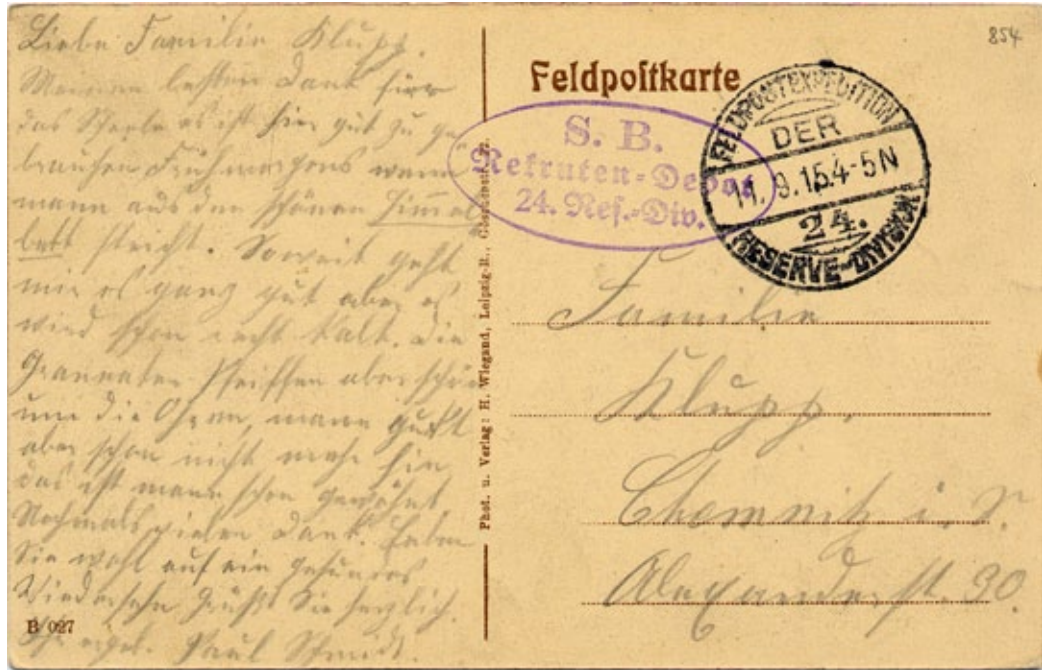 Liebe Familie Klupp.
Meinen besten Dank für
das Scheele es ist hier gut zu ge
brauchen Frühmorgens wenn
mann aus den schönen Himmel
bett steicht. Soweit geht
mir es ganz gut aber es
wird schon recht kalt. die
Grannaten Pfeiffen aber schön
um die Ohren, mann guckt
aber schon nicht mehr hin
das ist mann schon gewöhnt.
Nochmals vielen Dank. Leben
Sie wohl auf ein gesundes
Wiedersehn Grüßt Sie herzlich.
Ihr ergeb. Paul Schmidt.
B 027
Phot. u. Verlag: H. Wiegand, Leipzig-R.,
854
Feldpostkarte
S. B.
Rekruten-Depot
24. Res.-Div.
FELDPOSTEXPEDITION
DER
11. 9.15.4-5N
24.
RESERVE-DIVISION
Familie
Klupp.
Chemnitz i. S.
Alexanderst. 30.